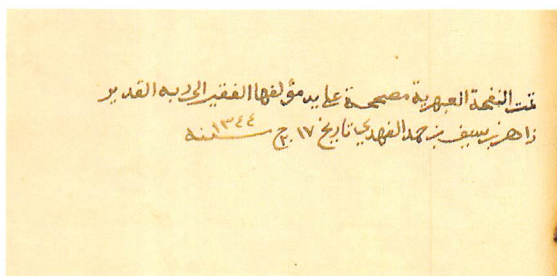 تمت النفحة العبهرية مصححة على يد مؤلفها الفقير الى ربه القدير
زاهر بن سيف بن حمد الفهدي تاريخ ١٧ ج سنة ١٣٤٤